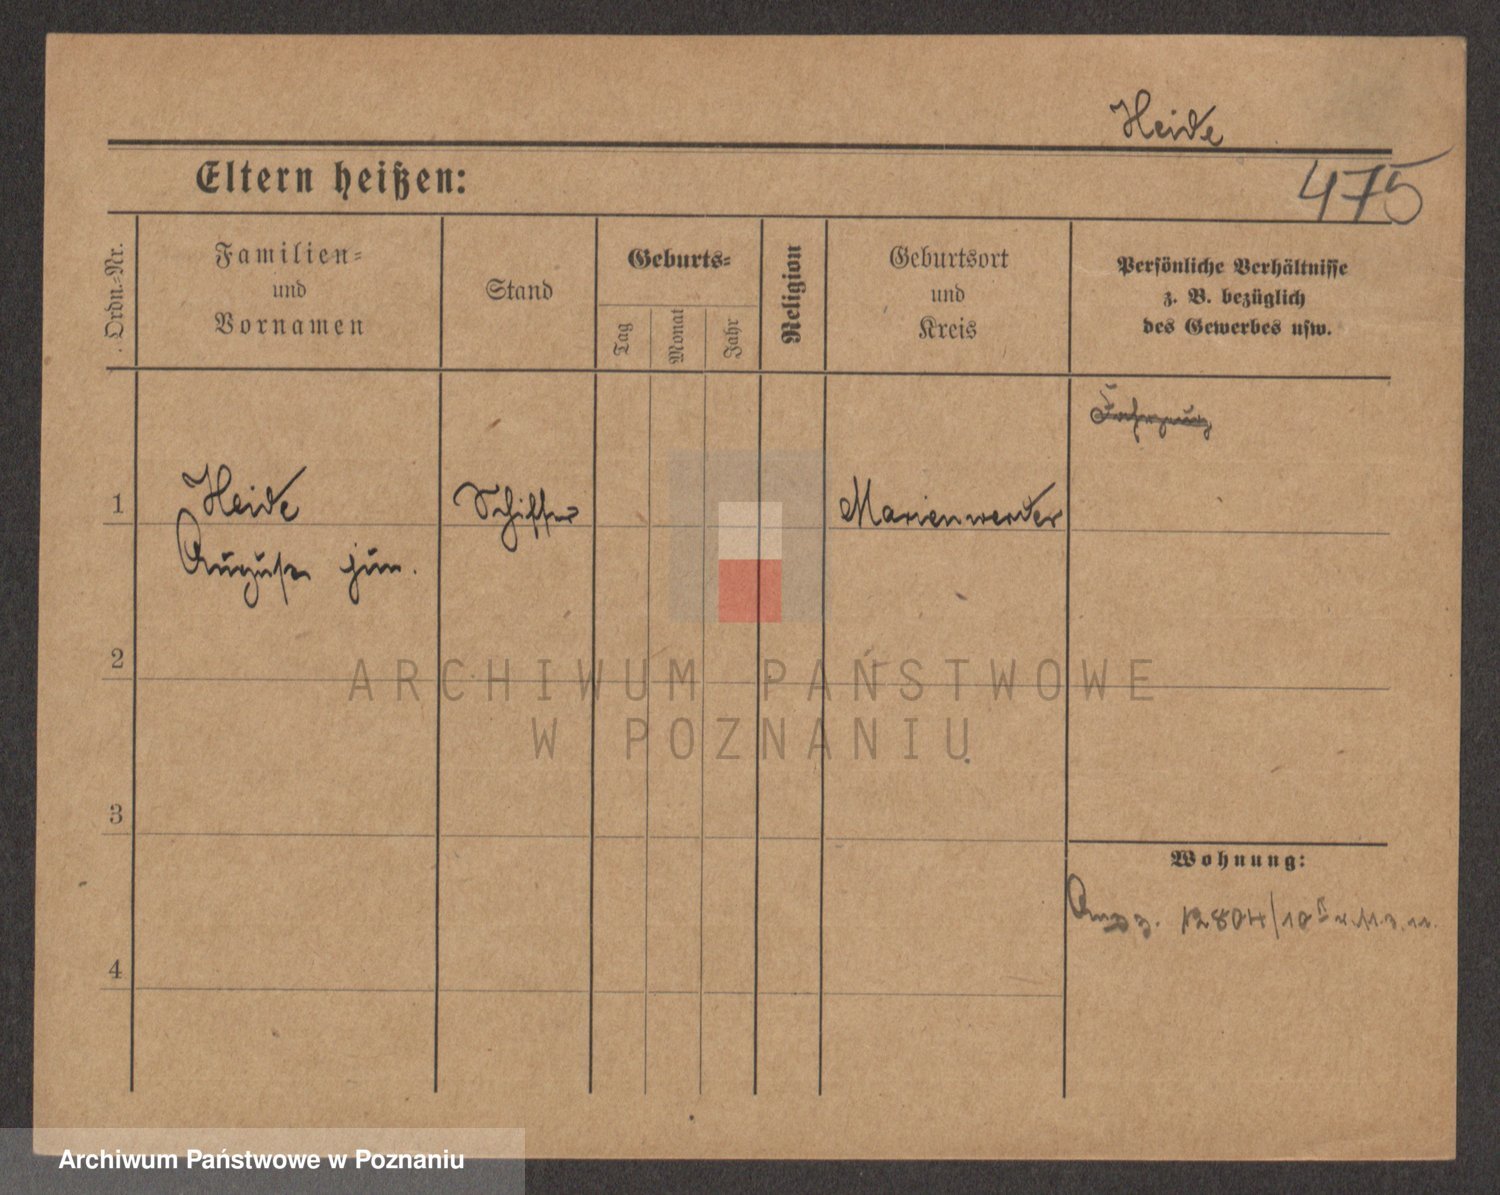 Heide
Eltern heißen:
475
Ordn.-Nr.
Familien-
und
Vornamen
Stand
Geburts-
Tag
Monat
Jahr
Religion
Geburtsort
und
Kreis
Persönliche Verhältnisse
z. B. bezüglich
des Gewerbes usw.
1
Heide
Schiffer
Marienwerder
August jun.
2
ARCHIWUM PAŃSTWOWE
W POZNANIU
3
Wohnung:
12804/10
4
Archiwum Państwowe w Poznaniu